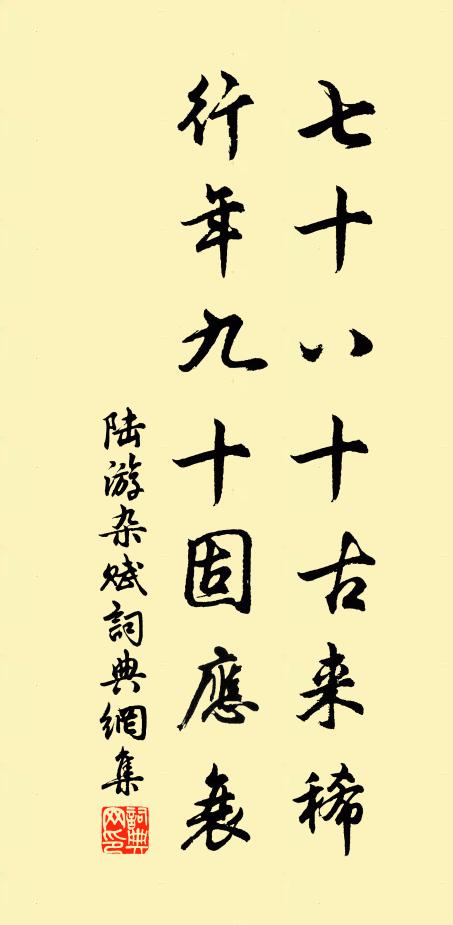 七十八十古来稀
行年九十固應衰
陆游杂赋詞典網集
詞典網印